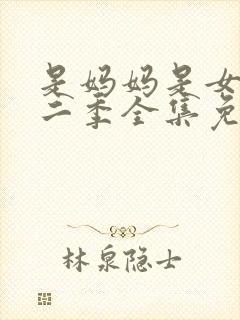 是妈妈是女
二季全集免
林泉隐士